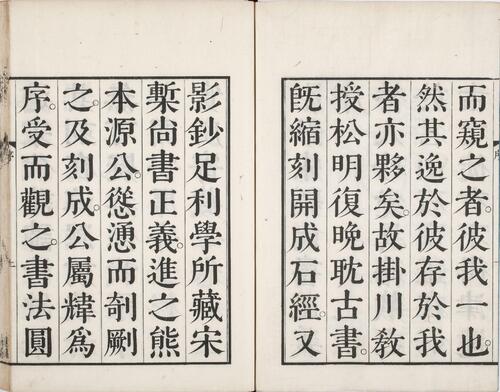 而窺之者。彼我一也。
然其逸於彼存於我
者亦夥矣。故掛川敎
授松明復晩耽古書。
旣縮刻開成石經。又
影鈔足利學所藏宋
槧尙書正義進之熊
本源公。慫慂而剞劂
之。及刻成。公屬煒爲
序。受而觀之。書法圓
序